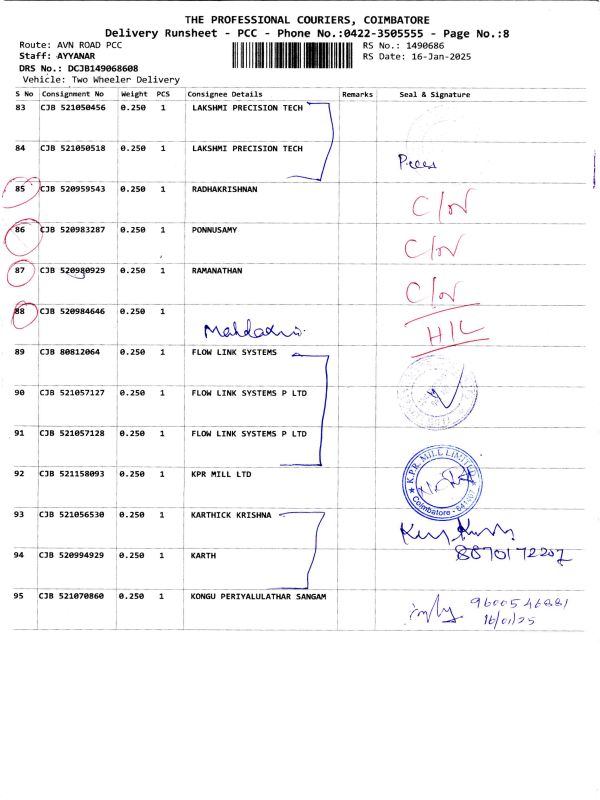 THE PROFESSIONAL COURIERS, COIMBATORE
Delivery Runsheet - PCC - Phone No.:0422-3505555 - Page No.:8
Route: AVN ROAD PCC
RS No.: 1490686
Staff: AYYANAR
RS Date: 16-Jan-2025
DRS No.: DCJB149068608
Vehicle: Two Wheeler Delivery
S No Consignment No Weight PCS Consignee Details Remarks Seal & Signature
83 CJB 521050456 0.250 1 LAKSHMI PRECISION TECH
84 CJB 521050518 0.250 1 LAKSHMI PRECISION TECH
85 CJB 520959543 0.250 1 RADHAKRISHNAN C/N
86 CJB 520983287 0.250 1 PONNUSAMY C/N
87 CJB 520980929 0.250 1 RAMANATHAN C/N
88 CJB 520984646 0.250 1 H/L
89 CJB 80812064 0.250 1 FLOW LINK SYSTEMS
90 CJB 521057127 0.250 1 FLOW LINK SYSTEMS P LTD
91 CJB 521057128 0.250 1 FLOW LINK SYSTEMS P LTD
92 CJB 521158093 0.250 1 KPR MILL LTD
K.P.R. MILL LIMITED
Coimbatore - 641
93 CJB 521056530 0.250 1 KARTHICK KRISHNA
94 CJB 520994929 0.250 1 KARTH
8870172207
95 CJB 521070860 0.250 1 KONGU PERIYALULATHAR SANGAM
9600546881
16/01/25